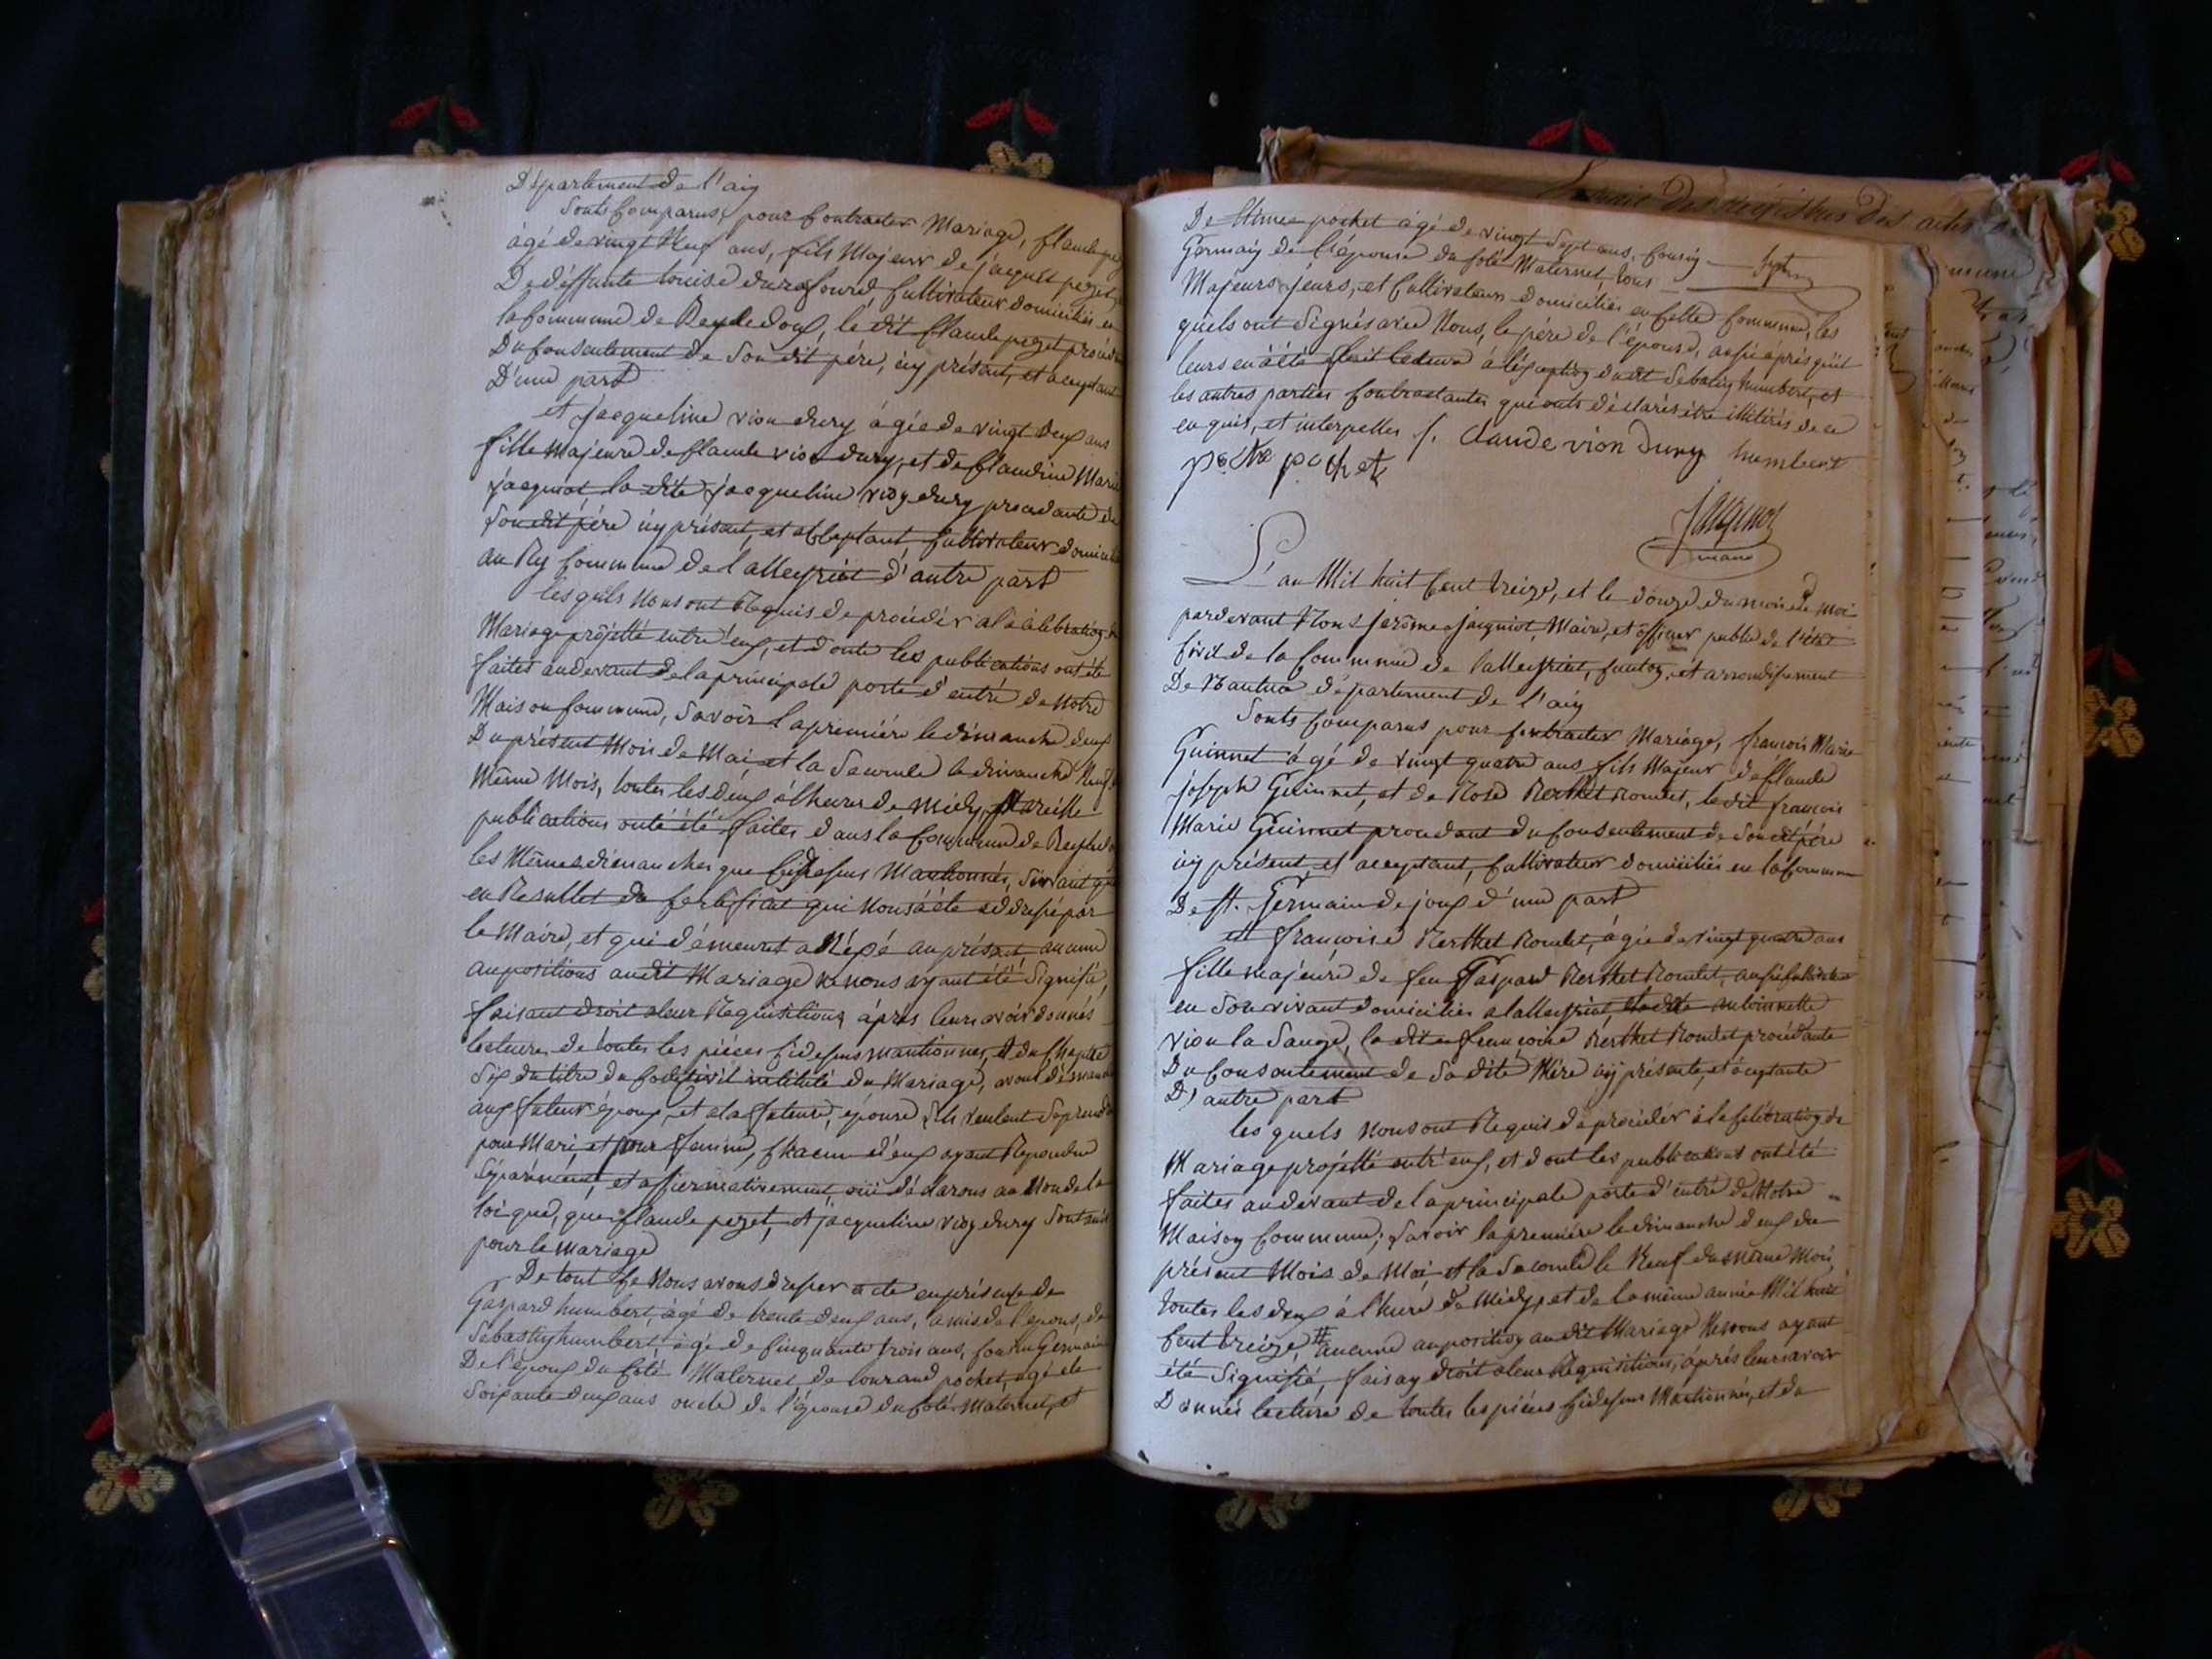 Département de l'ain
Sonts Comparus, pour Contracter Mariage, Claude
âgé de vingt Neuf ans, fils Majeur de jacques pezet,
De déffunte louise durafourd, Cultivateur domiciliés en
la Commune de Beyledoux, le dit Claude pezet procéd
Du Consentement de Son dit pére, iÿ présent, et acceptant
D'une part
et jacqueline vion dury âgée de vingt deux ans
fille Majeure de Claude vion dury, et de Claudine Marie
jacquiot la dite jacqueline vion dury procedante de
Son dit pére iÿ présent, et acceptant Cultivateur domicil
au Ry Commune de lalleyriat d'autre part
les quels Nous ont Requis de procéder a la célébration
Mariage projetté entre eux, et donte les publications ont été
faites audevant de la principale porte d'entré de Notre
Maison Commune, Savoir la premiére le dimanche deux
Du présent Mois de Mai et la Seconde le dimanche Neuf
Même Mois, toutes les deux à lheure de Midy, Pareille
publications onté été faites dans la Commune de Beyled
les Mêmes dimanches que Cidesus Mantionnés, Suivant
en Resultet du Certificat qui Nous à été addressé par
le Maire, et qui démeuret anéxé au présent, aucune
aupositions audit Mariage Ne nous ayant été Signifié,
faisant droit aleur Requisitions après leurs avoir donnés
lecture de toutes les piéces Cidesus mantionnes, et du Chapitre
Six du titre du Code Civil intitulé du Mariage, avons démand
aux futeur époux, et a la futeure, épouse S'ils veulent Se prend
pour Mari et pour femme, Chacun d'eux ayant Repondue
Séparément, et affirmativement, oüi déclarons au Nom de la
loi que, que Claude pezet, et jacqueline vion dury Sont unis
pour le mariage
De tout Ce Nous avons dresser acte en présence de
Gaspard humbert, âgé de trente deux ans, amis de l'epous, de
Sébastin humbert, âgé de Cinquante trois ans, Cousin Germain
De l'époux du Coté Maternel de pochet, âgé de
Soixante deux ans oncle de l'épouse du Coté Maternel, et
De pochet âgé de vingt Sept ans, Cousin
Germain de l'épouse du Coté Maternel, tous
Majeurs jeurs, et Cultivateurs domiciliés en Cette Commune, les
quels ont Signés avec Nous, le pére de l'épouse, aussi après qu'il
leurs en à été fait lecture à léxeption dudit Sebastin humbert, et
les autres parties Contractantes qui onts déclarés être illitérés de ce
enquis, et interpelles /. Claude vion Dury humbert
pochet
Jacquiot
maire
L'an Mil huit Cent treize, et le douze du mois de Mai
pardevant Nous jerôme jacquiot, Maire, et officier public de l'état
Civil de la Commune de lalleyriat, Canton, et arrondissement
De Nantua département de l'ain
Sonts Comparus pour Contracter Mariage, françois Marie
Guinnet âgé de vingt quatre ans fils Majeur de Claude
joseph Guinnet, et de Rose Berthet Rondet, ledit françois
Marie Guinnet procedant du Consentement de Son dit pére
iÿ présent, et acceptant, Cultivateur domiciliés en la Commune
De St. Germain de joux d'une part
et françoise Berthet Rondet, âgée de vingt quatre ans
fille majeure de feu Gaspard Berthet Rondet, aussi Cultivateur
en Son vivant domicilies a lalleyriat et de antoinnette
vion la Sauge, la dit françoise Berthet Rondet procédante
Du Consentement de Sa dite Mére iÿ présente, et aceptante
D'autre part
les quels Nous ont Requis de procéder à la Célébration de
Mariage projetté entr'eux, et dont les publications ont été
faites audevant de la principale porte d'entré de Notre
Maison Commune; Savoir la premiére le dimanche deux du
présent Mois de Mai, et la Seconde le Neuf du même Mois,
toutes les deux à lheure de Midy, et de la même année Mil huit
Cent treize, # aucune auposition audit Mariage Ne nous ayant
été Signifié, faisan droit a leur Requisitions, après leurs avoir
Donnés lecture de toutes les piéces Cidesus Mantionnés, et du